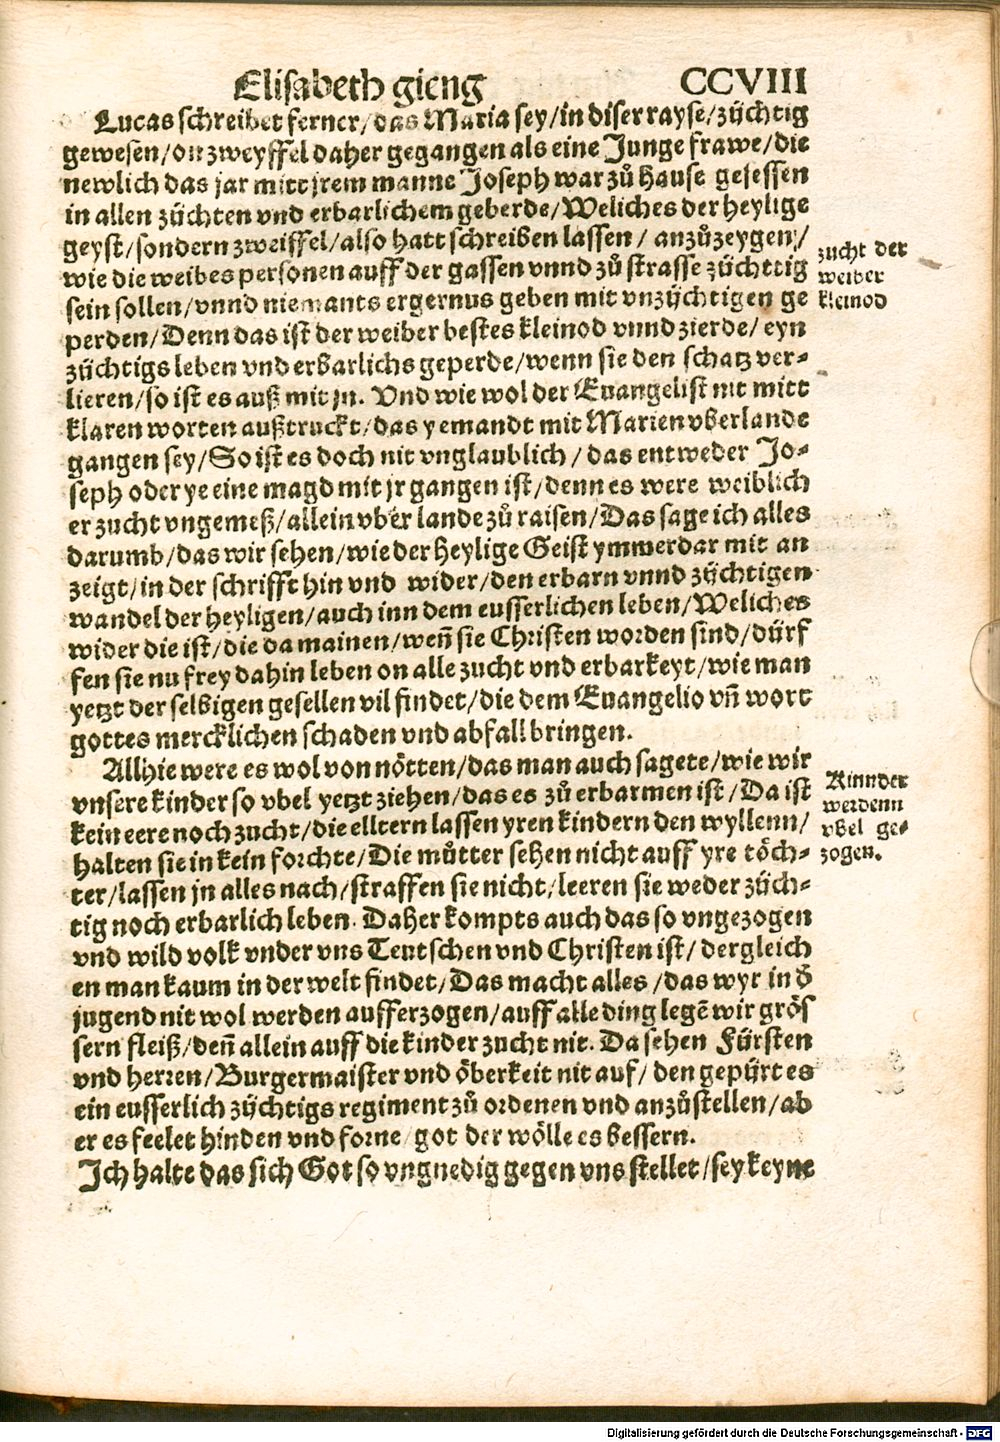 Elisabeth gieng CCVIII
Lucas schreibet ferner/das Maria sey/in diser rayse/züchtig
gewesen/on zweyffel daher gegangen als eine Junge frawe/die
newlich das jar mitt jrem manne Joseph war zů hause gesessen
in allen züchten vnd erbarlichem geberde/Weliches der heylige
geyst/sondern zweiffel/also hatt schreiben lassen/ anzůzeygen/
wie die weibes personen auff der gassen vnnd zů strasse züchttig
sein sollen/vnnd niemants ergernus geben mit vnzüchtigen ge
perden/Denn das ist der weiber bestes kleinod vnnd zierde/ eyn
züchtigs leben vnd erbarlichs geperde/wenn sie den schatz ver-
lieren/so ist es auß mit jn. Vnd wie wol der Euangelist nit mitt
klaren worten außtruckt/das yemandt mit Marien vberlande
gangen sey/So ist es doch nit vnglaublich/das entweder Jo-
seph oder ye eine magd mit jr gangen ist/denn es were weiblich
er zucht vngemeß/allein vber lande zů raisen/Das sage ich alles
darumb/das wir sehen/wie der heylige Geist ymmerdar mit an
zeigt/in der schrifft hin vnd wider/den erbarn vnnd züchtigen
wandel der heyligen/auch inn dem eusserlichen leben/Weliches
wider die ist/die da mainen/weñ sie Christen worden sind/dürf
fen sie nu frey dahin leben on alle zucht vnd erbarkeyt/wie man
yetzt der selbigen gesellen vil findet/die dem Euangelio vñ wort
gottes mercklichen schaden vnd abfall bringen.
zucht der
weiber
kleinod
Allhie were es wol von nötten/das man auch sagete/wie wir
vnsere kinder so vbel yetzt ziehen/das es zů erbarmen ist/Da ist
kein eere noch zucht/die elltern lassen yren kindern den wyllenn/
halten sie in kein forchte/Die můtter sehen nicht auff yre töch-
ter/lassen jn alles nach/straffen sie nicht/leeren sie weder züch-
tig noch erbarlich leben. Daher kompts auch das so vngezogen
vnd wild volk vnder vns Teutschen vnd Christen ist/dergleich
en man kaum in der welt findet/Das macht alles/das wyr in ď
jugend nit wol werden aufferzogen/auff alle ding legẽ wir grös
sern fleiß/deñ allein auff die kinder zucht nit. Da sehen Fürsten
vnd herren/Burgermaister vnd öberkeit nit auf/ den gepürt es
ein eusserlich züchtigs regiment zů ordenen vnd anzůstellen/ab
er es feelet hinden vnd forne/got der wölle es bessern.
Ich halte das sich Got so vngnedig gegen vns stellet/sey keyne
Kinnder
werdenn
vbel ge-
zogen.
Digitalisierung gefördert durch die Deutsche Forschungsgemeinschaft - DFG